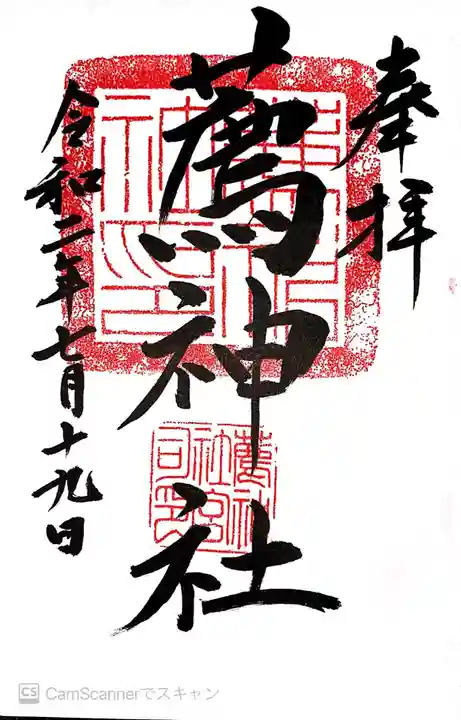 奉拝
薦神社
令和二年七月十九日
薦神社宮司之印
CS CamScannerでスキャン